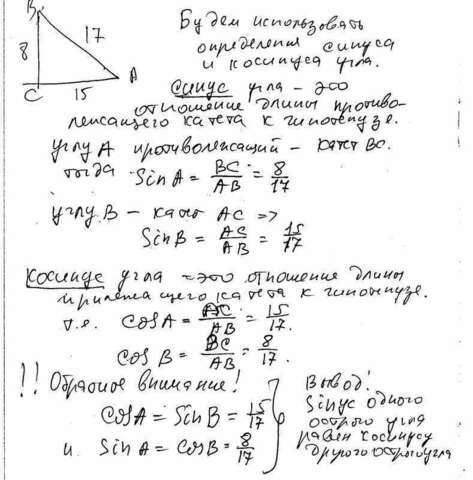 B
8
17
C
15
A
Будем использовать
определения синуса
и косинуса угла.
Синус угла – это
отношение длины противо-
лежащего катета к гипотенузе.
углу A противолежащий – катет BC.
тогда Sin A = BC/AB = 8/17
углу B – катет AC =>
Sin B = AC/AB = 15/17
Косинус угла – это отношение длины
прилежащего катета к гипотенузе.
т.е. cos A = AC/AB = 15/17.
cos B = BC/AB = 8/17.
!! Обратите внимание!
cos A = Sin B = 15/17
и Sin A = cos B = 8/17
Вывод!
Sinус одного
острого угла
равен косинусу
другого острого угла